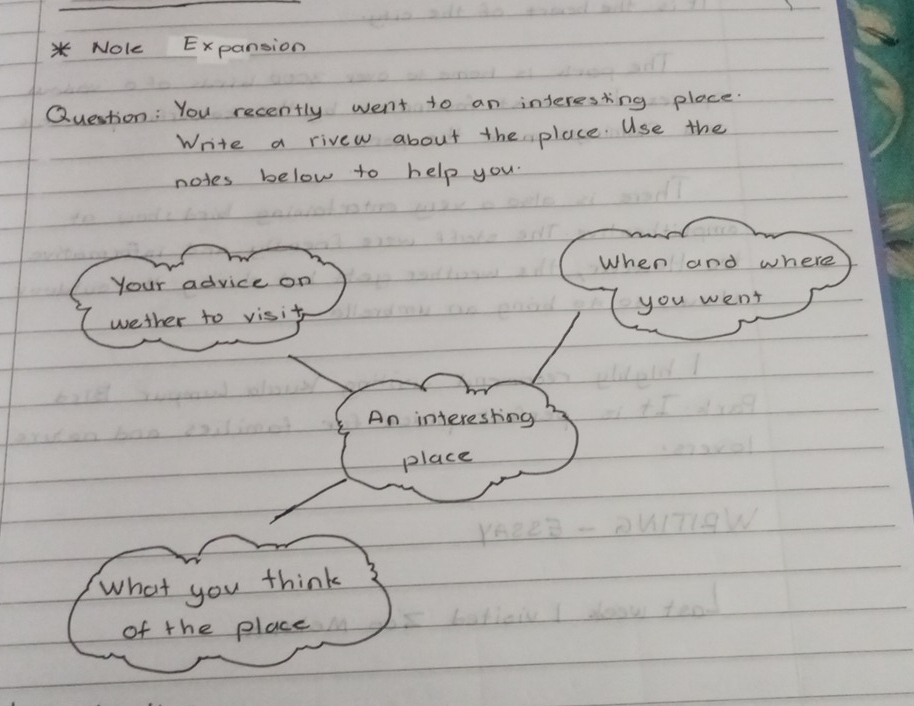 * Note Expansion
Question: You recently went to an interesting place.
Write a rivew about the place. Use the
notes below to help you.
Your advice on
wether to visit
When and where
you went
An interesting
place
What you think
of the place